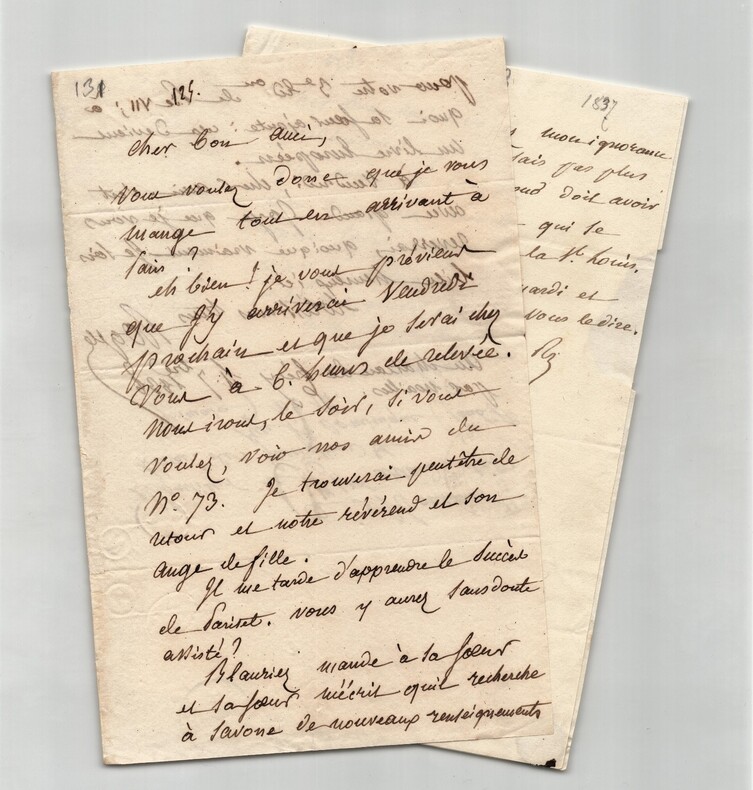 131 125.
Cher bon ami,
Vous voulez donc que je vous
mange tout en arrivant à
Paris?
eh bien! je vous préviens
que j'y arriverai Vendredi
prochain et que je serai chez
Vous à 6. heures de relevée.
Nous irons, le soir, si vous
voulez, voir nos amis du
N.º 73. Je trouverai peutêtre de
retour et notre révérend et son
ange de fille.
Il me tarde d'apprendre le succès
de Pariset. vous y aurez sans doute
assisté?
Blauriez mande à sa soeur
et sa soeur m'écrit qu'il recherche
à Savone de nouveaux renseignements
1837
mon ignorance
sais pas plus
doit avoir
qui se
la St. Louis.
mardi et
vous le dire.